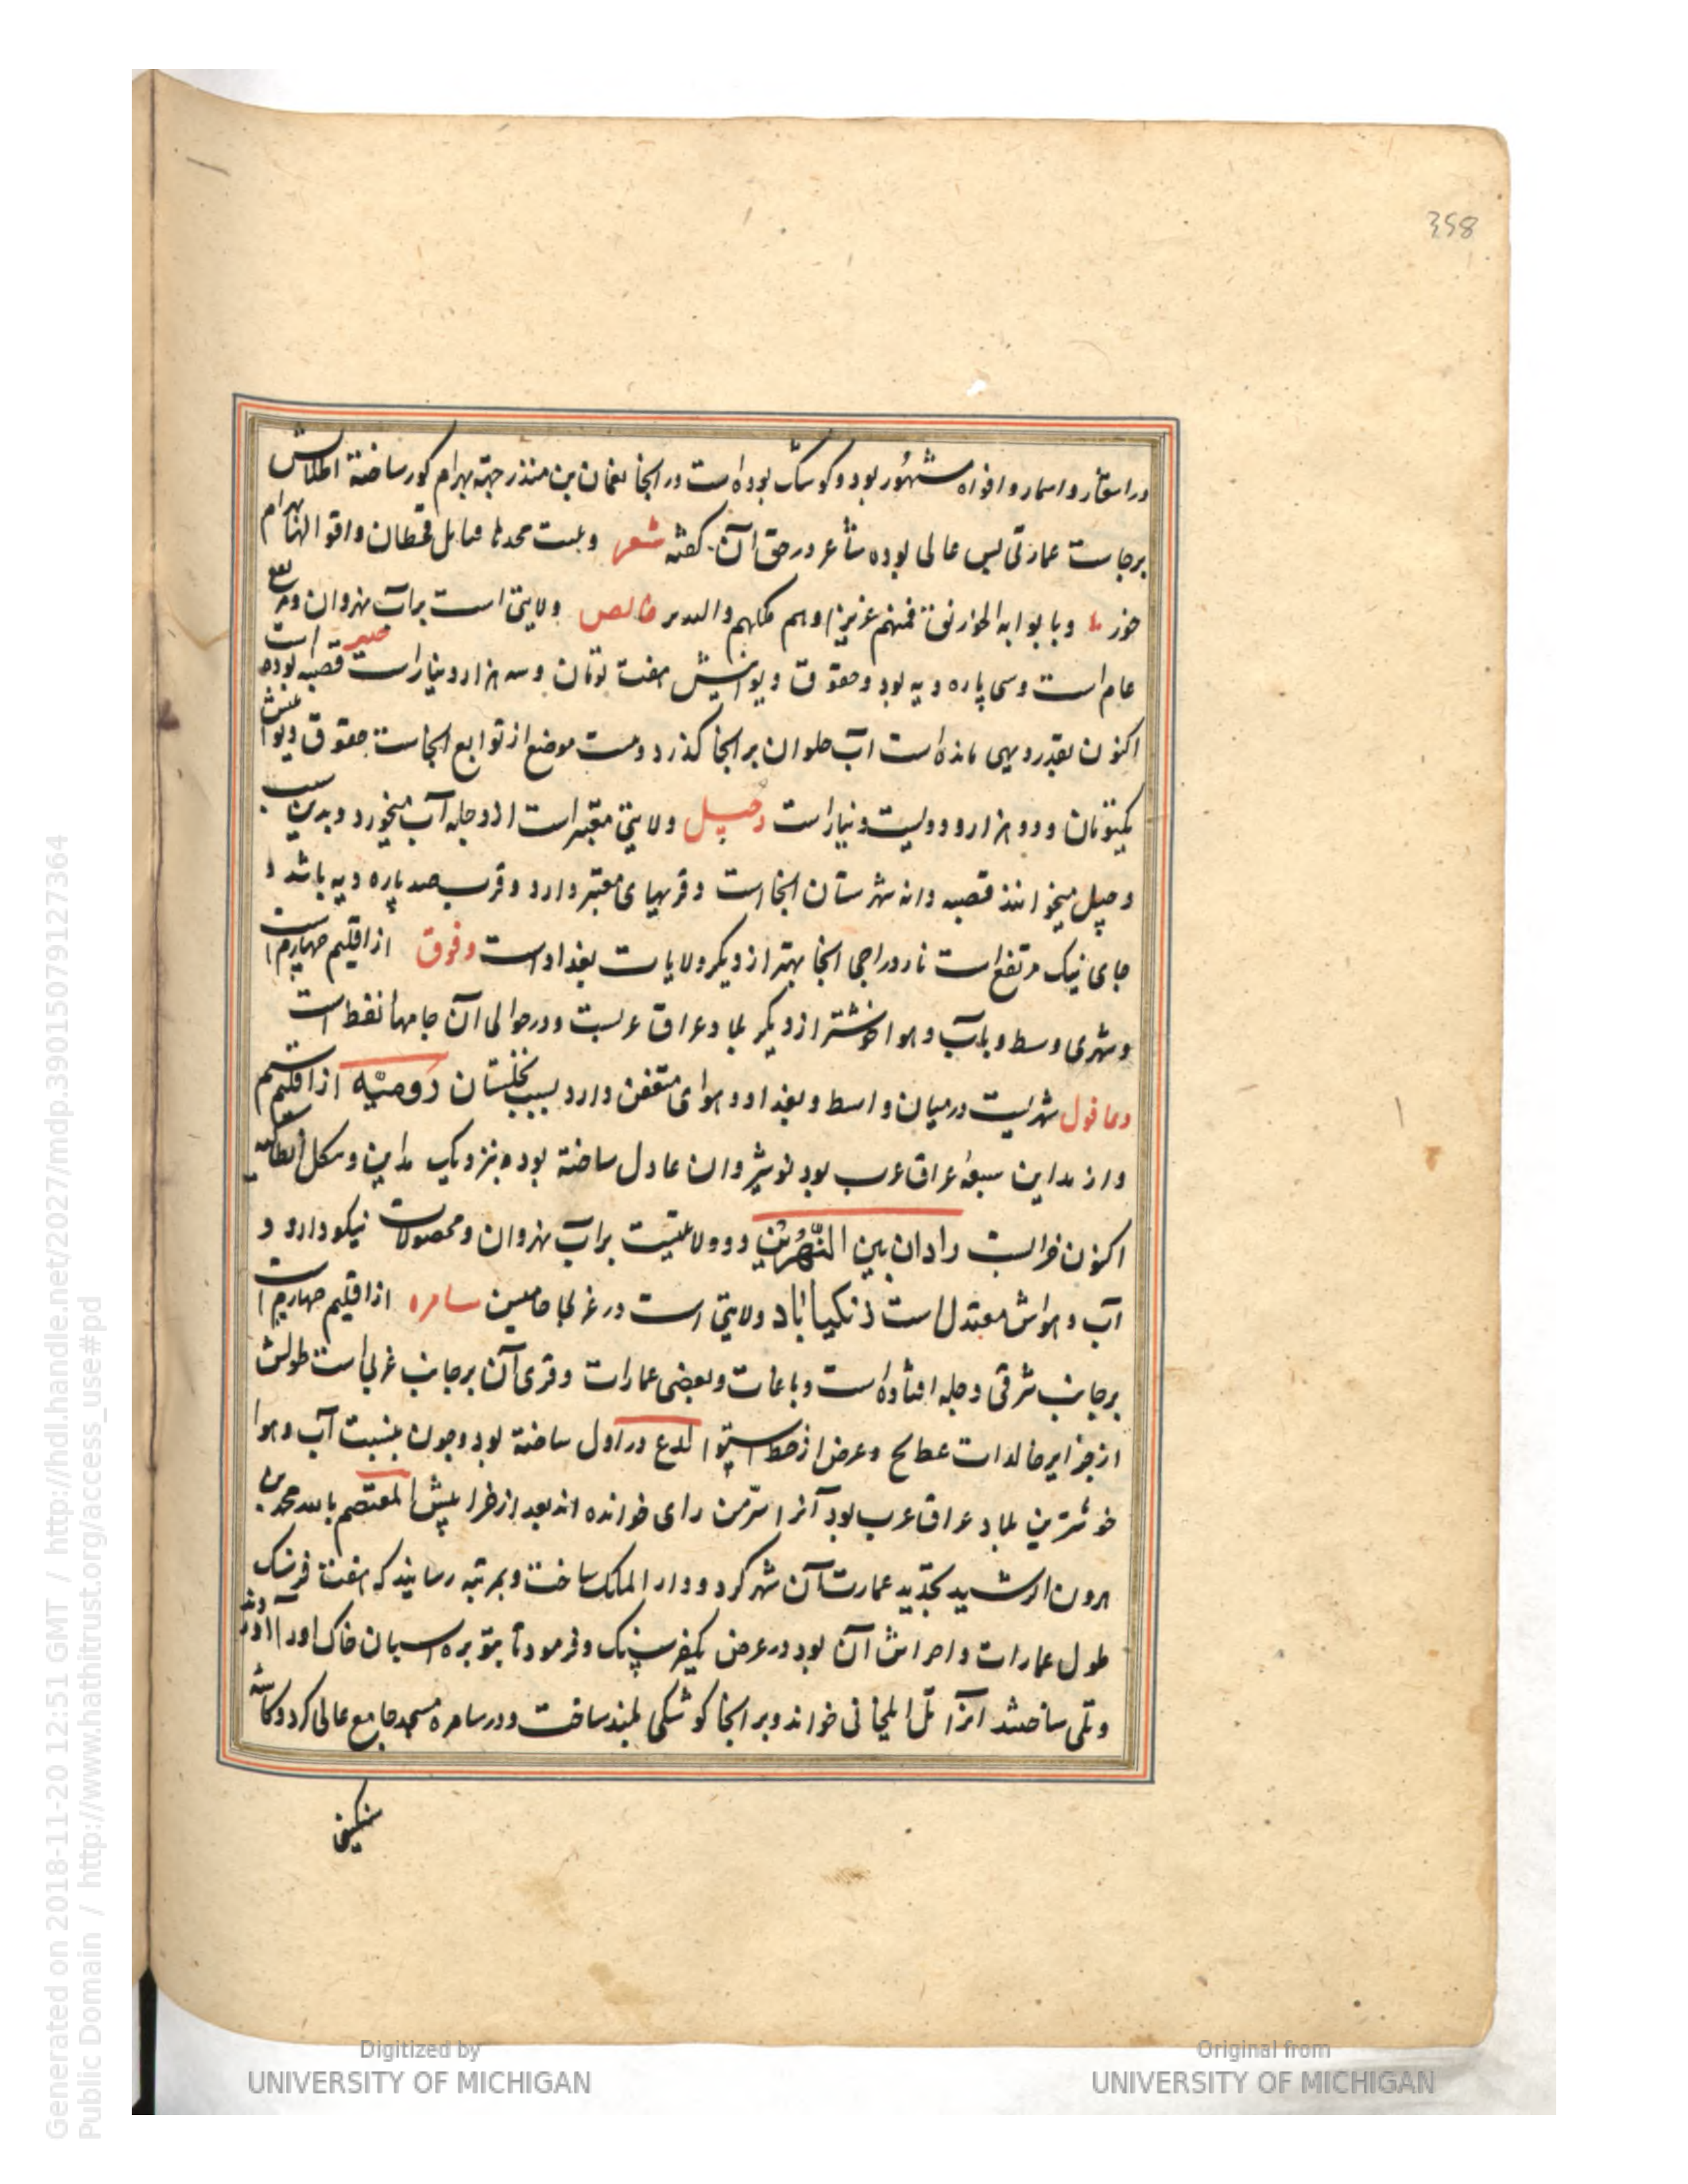 358
در اسفار و اسمار و افواه مشهور بود و کوشک بوده است در انجا نعمان بن منذر جهة بهرام کور ساخته اطلالش
برجاست عمارتی بس عالی بوده شاعر در حق آن کفته شعر وبنت محدثا قبایل قحطان واقوالها بهرام
خور ما وبابوابه الخورنق فمنهم عزیز اوهم ملکهم والسدیر خالص ولایتی است بر آب نهروان و
عام است و سی پاره دیه بود و حقوق دیوانیش هفت تومان و سه هزار دینار است قصبه بوده است
اکنون بقدر دیهی مانده است آب حلوان بر انجا کذرد و بیست موضع از توابع انجاست حقوق دیوانیش
یکتومان و دو هزار و دویست دینار است دجیل ولایتی معتبر است از دجله آب میخورد و بدین سبب
دجیل میخوانند قصبه وانه شهرستان انجا است و قریهای معتبر دارد و قرب صد پاره دیه باشد و
جای نیک مرتفع است نار دراجی انجا بهتر از دیکر ولایات بغداد است دقوق از اقلیم چهارم است
و شهری وسط و بآب و هوا خوشتر از دیکر بلاد عراق عربست و در حوالی آن جامها نفط است
دعاقول شهریست در میان واسط و بغداد و هوای متعفن دارد بسبب نخلستان رومیّه از اقلیم سیم
و از مداین سبعهٔ عراق عرب بود نوشیروان عادل ساخته بوده بنزدیک مداین و بشکل انطاکیه
اکنون خرابست رادان بین النّهرین دو ولایتیست بر آب نهروان و محصولات نیکو دارد و
آب و هواش معتدل است زنکیاباد ولایتی است در غربی جامیین سامره از اقلیم چهارم است
بر جانب شرقی دجله افتاده است و باغات و بعضی عمارات و قری آن بر جانب غربی است طولش
از جزایر خالدات عطلح و عرض از خط استوا لدع در اول ساخته بود و چون بنسبت آب و هوا
خوشترین بلاد عراق عرب بود آنرا سرّمن رای خوانده اند بعد از خرابیش المعتصم بالله محمد بن
هرون الرشید بجدّید عمارت آن شهر کرد و دار الملک ساخت و بمرتبه رسانید که هفت فرسنک
طول عمارات و اجراش آن بود در عرض یکفرسنک و فرمود تا بتوبره اسبان خاک اوردند
و تلی ساختند انرا تل المخانی خواند و بر انجا کوشکی بلند ساخت و در سامره مسجد جامع عالی کرد و کاسه
سنکین
Digitized by
UNIVERSITY OF MICHIGAN
Original from
UNIVERSITY OF MICHIGAN
Generated on 2018-11-20 12:51 GMT / http://hdl.handle.net/2027/mdp.39015079127364
Public Domain / http://www.hathitrust.org/access_use#pd